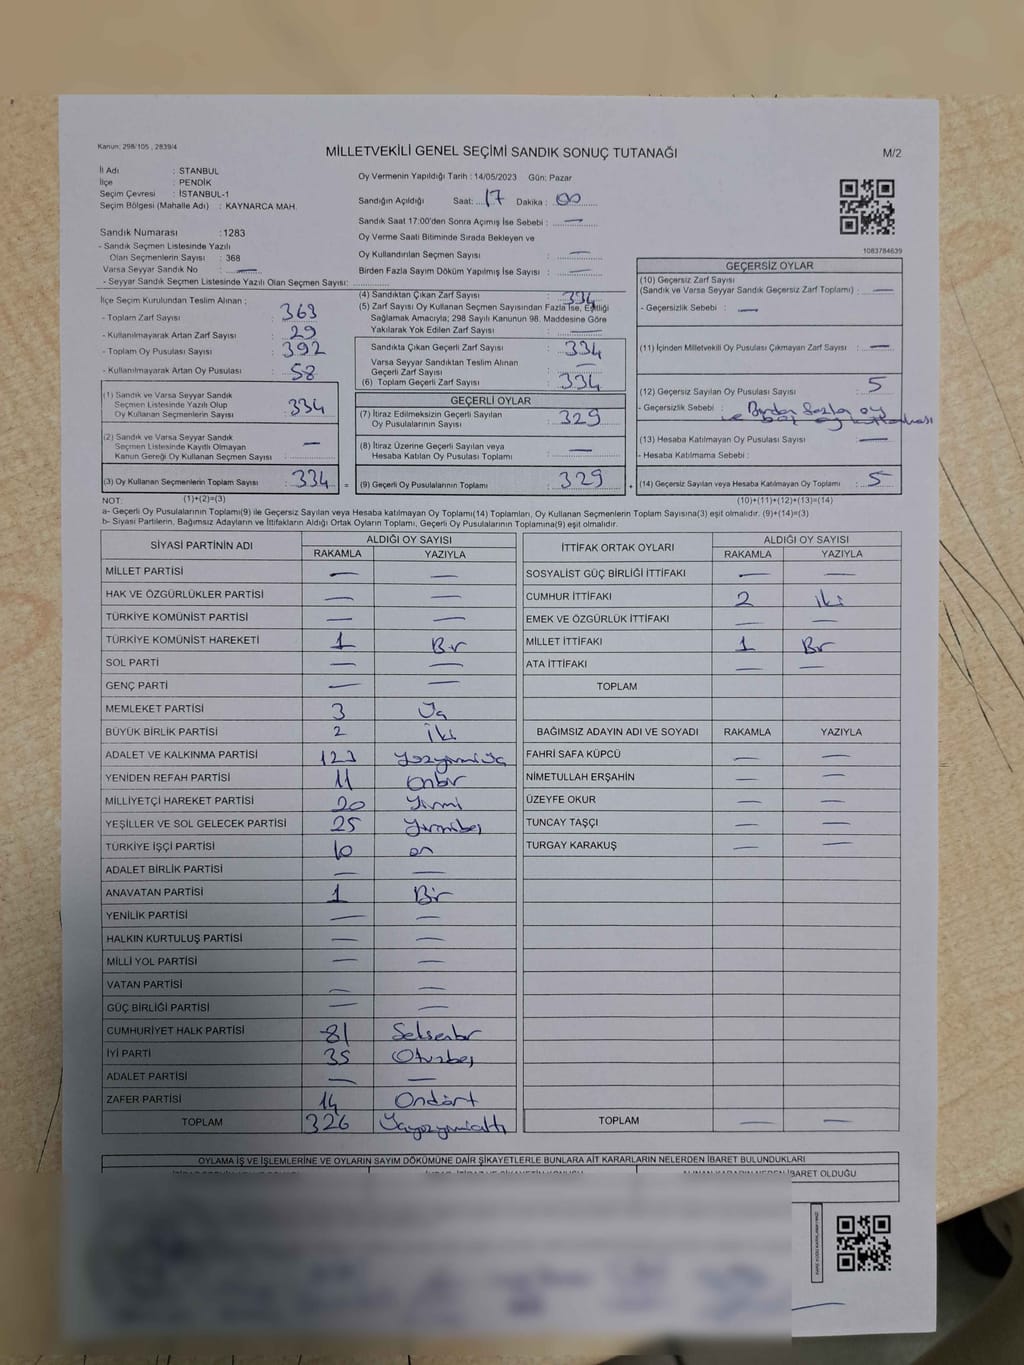 Kanun: 298/105 , 2839/4
MİLLETVEKİLİ GENEL SEÇİMİ SANDIK SONUÇ TUTANAĞI
M/2
İl Adı : STANBUL
İlçe : PENDİK
Seçim Çevresi : İSTANBUL-1
Seçim Bölgesi (Mahalle Adı) : KAYNARCA MAH.
Sandık Numarası : 1283
- Sandık Seçmen Listesinde Yazılı
Olan Seçmenlerin Sayısı : 368
Varsa Seyyar Sandık No : —
- Seyyar Sandık Seçmen Listesinde Yazılı Olan Seçmen Sayısı:
Oy Vermenin Yapıldığı Tarih : 14/05/2023 Gün: Pazar
Sandığın Açıldığı Saat: 17 Dakika : 00
Sandık Saat 17:00'den Sonra Açımış İse Sebebi : —
Oy Verme Saati Bitiminde Sırada Bekleyen ve
Oy Kullandırılan Seçmen Sayısı : —
Birden Fazla Sayım Döküm Yapılmış İse Sayısı : —
1083784639
İlçe Seçim Kurulundan Teslim Alınan :
- Toplam Zarf Sayısı : 363
- Kullanılmayarak Artan Zarf Sayısı : 29
- Toplam Oy Pusulası Sayısı : 392
- Kullanılmayarak Artan Oy Pusulası : 58
(1) Sandık ve Varsa Seyyar Sandık
Seçmen Listesinde Yazılı Olup
Oy Kullanan Seçmenlerin Sayısı : 334
(2) Sandık ve Varsa Seyyar Sandık
Seçmen Listesinde Kayıtlı Olmayan
Kanun Gereği Oy Kullanan Seçmen Sayısı : —
(3) Oy Kullanan Seçmenlerin Toplam Sayısı : 334 =
(4) Sandıktan Çıkan Zarf Sayısı : 334
(5) Zarf Sayısı Oy Kullanan Seçmen Sayısından Fazla İse, Eşitliği
Sağlamak Amacıyla; 298 Sayılı Kanunun 98. Maddesine Göre
Yakılarak Yok Edilen Zarf Sayısı : —
Sandıkta Çıkan Geçerli Zarf Sayısı : 334
Varsa Seyyar Sandıktan Teslim Alınan
Geçerli Zarf Sayısı : —
(6) Toplam Geçerli Zarf Sayısı : 334
GEÇERLİ OYLAR
(7) İtiraz Edilmeksizin Geçerli Sayılan
Oy Pusulalarının Sayısı : 329
(8) İtiraz Üzerine Geçerli Sayılan veya
Hesaba Katılan Oy Pusulası Toplamı : —
(9) Geçerli Oy Pusulalarının Toplamı : 329 +
GEÇERSİZ OYLAR
(10) Geçersiz Zarf Sayısı
(Sandık ve Varsa Seyyar Sandık Geçersiz Zarf Toplamı) : —
- Geçersizlik Sebebi : —
(11) İçinden Milletvekili Oy Pusulası Çıkmayan Zarf Sayısı : —
(12) Geçersiz Sayılan Oy Pusulası Sayısı : 5
- Geçersizlik Sebebi : Birden fazla oy
(13) Hesaba Katılmayan Oy Pusulası Sayısı : —
- Hesaba Katılmama Sebebi :
(14) Geçersiz Sayılan veya Hesaba Katılmayan Oy Toplamı : 5
NOT: (1)+(2)=(3) (10)+(11)+(12)+(13)=(14)
a- Geçerli Oy Pusulalarının Toplamı(9) ile Geçersiz Sayılan veya Hesaba Katılmayan Oy Toplamı(14) Toplamları, Oy Kullanan Seçmenlerin Toplam Sayısına(3) eşit olmalıdır. (9)+(14)=(3)
b- Siyasi Partilerin, Bağımsız Adayların ve İttifakların Aldığı Ortak Oyların Toplamı, Geçerli Oy Pusulalarının Toplamına(9) eşit olmalıdır.
SİYASİ PARTİNİN ADI ALDIĞI OY SAYISI
RAKAMLA YAZIYLA
MİLLET PARTİSİ — —
HAK VE ÖZGÜRLÜKLER PARTİSİ — —
TÜRKİYE KOMÜNİST PARTİSİ — —
TÜRKİYE KOMÜNİST HAREKETİ 1 Bir
SOL PARTİ — —
GENÇ PARTİ — —
MEMLEKET PARTİSİ 3 Üç
BÜYÜK BİRLİK PARTİSİ 2 İki
ADALET VE KALKINMA PARTİSİ 123 Yüzyirmiüç
YENİDEN REFAH PARTİSİ 11 Onbir
MİLLİYETÇİ HAREKET PARTİSİ 20 Yirmi
YEŞİLLER VE SOL GELECEK PARTİSİ 25 Yirmibeş
TÜRKİYE İŞÇİ PARTİSİ 10 on
ADALET BİRLİK PARTİSİ — —
ANAVATAN PARTİSİ 1 Bir
YENİLİK PARTİSİ — —
HALKIN KURTULUŞ PARTİSİ — —
MİLLİ YOL PARTİSİ — —
VATAN PARTİSİ — —
GÜÇ BİRLİĞİ PARTİSİ — —
CUMHURİYET HALK PARTİSİ 81 Seksenbir
İYİ PARTİ 35 Otuzbeş
ADALET PARTİSİ — —
ZAFER PARTİSİ 14 Ondört
TOPLAM 326 Üçyüzyirmialtı
İTTİFAK ORTAK OYLARI ALDIĞI OY SAYISI
RAKAMLA YAZIYLA
SOSYALİST GÜÇ BİRLİĞİ İTTİFAKI — —
CUMHUR İTTİFAKI 2 iki
EMEK VE ÖZGÜRLÜK İTTİFAKI — —
MİLLET İTTİFAKI 1 Bir
ATA İTTİFAKI — —
TOPLAM
BAĞIMSIZ ADAYIN ADI VE SOYADI RAKAMLA YAZIYLA
FAHRİ SAFA KÜPCÜ — —
NİMETULLAH ERŞAHİN — —
ÜZEYFE OKUR — —
TUNCAY TAŞÇI — —
TURGAY KARAKUŞ — —
TOPLAM — —
OYLAMA İŞ VE İŞLEMLERİNE VE OYLARIN SAYIM DÖKÜMÜNE DAİR ŞİKAYETLERLE BUNLARA AİT KARARLARIN NELERDEN İBARET BULUNDUKLARI
ALINAN KARARIN NEDEN İBARET OLDUĞU